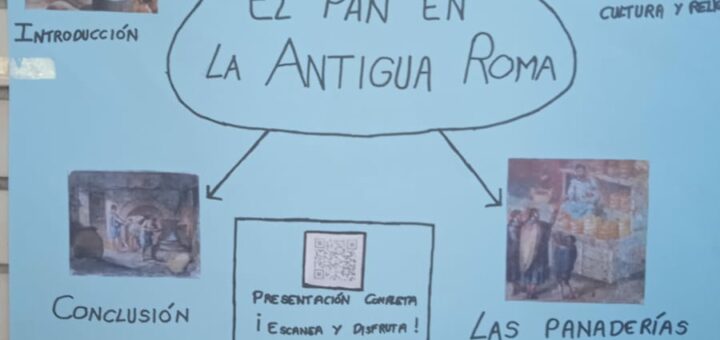 EL PAN EN
LA ANTIGUA ROMA
INTRODUCCIÓN
CULTURA Y
CONCLUSIÓN
PRESENTACIÓN COMPLETA
¡ESCANEA Y DISFRUTA!
LAS PANADERÍAS